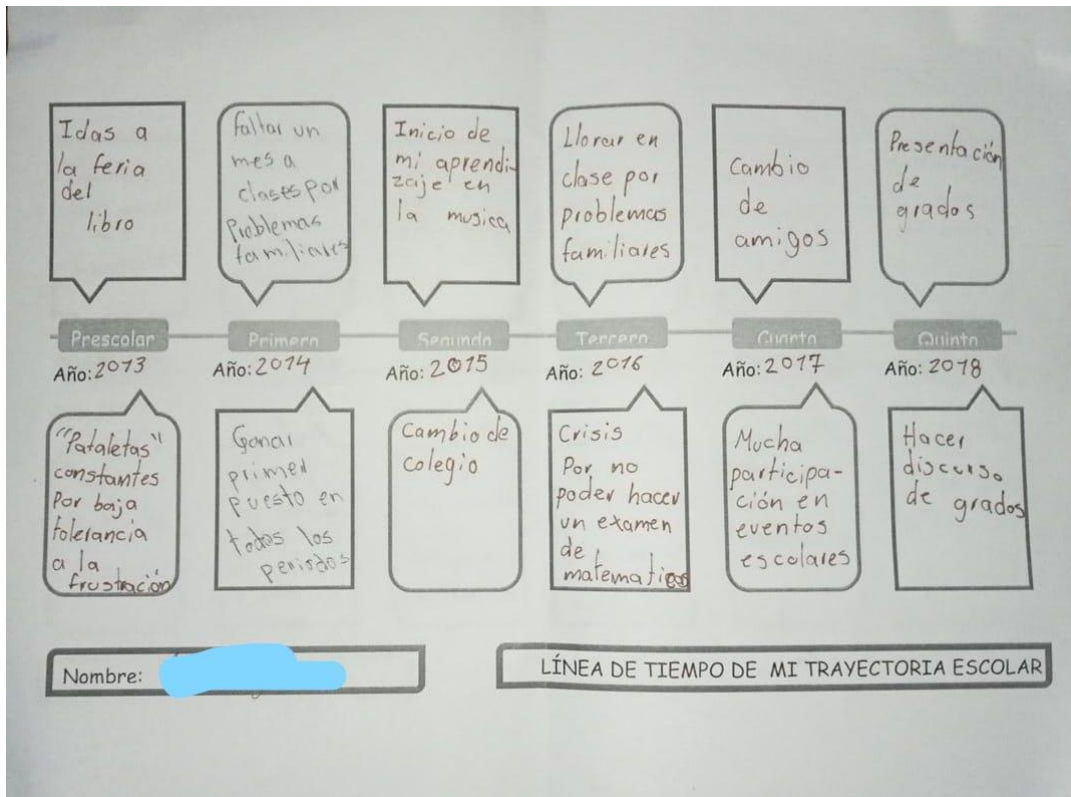 Idas a
la feria
del
libro
faltar un
mes a
clases por
Problemas
familiares
Inicio de
mi aprendi-
zaje en
la musica
Llorar en
clase por
problemas
familiares
Cambio
de
amigos
Presentación
de
grados
Prescolar
Primero
Segundo
Tercero
Cuarto
Quinto
Año: 2013
Año: 2014
Año: 2015
Año: 2016
Año: 2017
Año: 2018
"Pataletas"
constantes
Por baja
tolerancia
a la
frustración
Ganar
primer
puesto en
todos los
periodos
Cambio de
colegio
Crisis
Por no
poder hacer
un examen
de
matematicas
Mucha
participa-
ción en
eventos
escolares
Hacer
discurso
de grados
Nombre:
LÍNEA DE TIEMPO DE MI TRAYECTORIA ESCOLAR